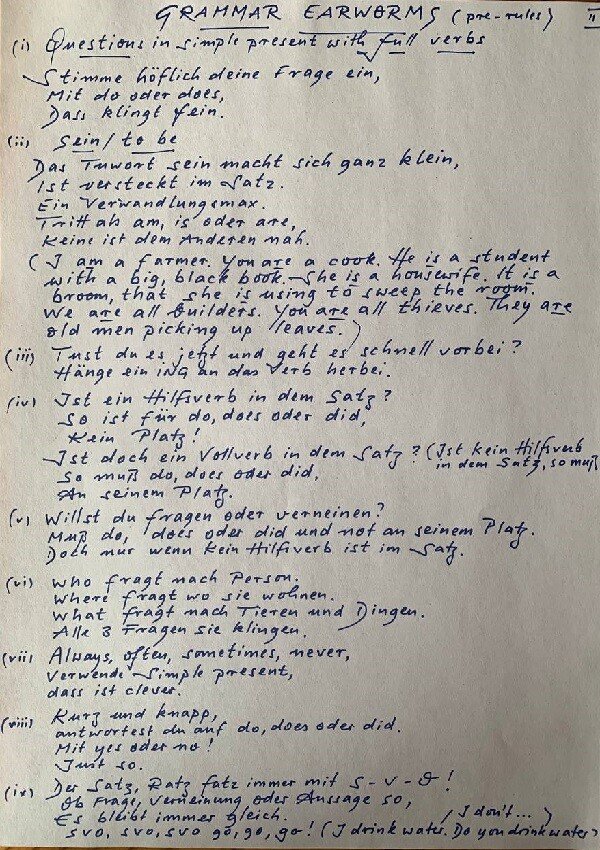 GRAMMAR EARWORMS (pre-rules) II
(i) Questions in simple present with full verbs
Stimme höflich deine Frage ein,
Mit do oder does,
Dass klingt fein.
(ii) Sein / to be
Das Tuwort sein macht sich ganz klein,
Ist versteckt im Satz.
Ein Verwandlungsmax.
Tritt als am, is oder are,
Keine ist dem Anderen nah.
(I am a farmer. You are a cook. He is a student
with a big, black book. She is a housewife. It is a
broom, that she is using to sweep the room.
We are all builders. You are all thieves. They are
old men picking up leaves.)
(iii) Tust du es jetzt und geht es schnell vorbei?
Hänge ein ING an das Verb herbei.
(iv) Ist ein Hilfsverb in dem Satz?
So ist für do, does oder did,
Kein Platz!
Ist doch ein Vollverb in dem Satz? (Ist kein Hilfsverb
in dem Satz, so muß
So muß do, does oder did,
An seinem Platz.
(v) Willst du fragen oder verneinen?
Muß do, does oder did und not an seinem Platz.
Doch nur wenn kein Hilfsverb ist im Satz.
(vi) Who fragt nach Person.
Where fragt wo sie wohnen.
What fragt nach Tieren und Dingen.
Alle 3 Fragen sie klingen.
(vii) Always, often, sometimes, never,
Verwende Simple present,
dass ist clever.
(viii) Kurz und knapp,
antwortest du auf do, does oder did.
Mit yes oder no!
Just so.
(ix) Der Satz, Ratz fatz immer mit S-V-O!
Ob Frage, Verneinung oder Aussage so,
Es bleibt immer gleich. / I don't... )
SVO, SVO, SVO go, go, go! (I drink water. Do you drink water?